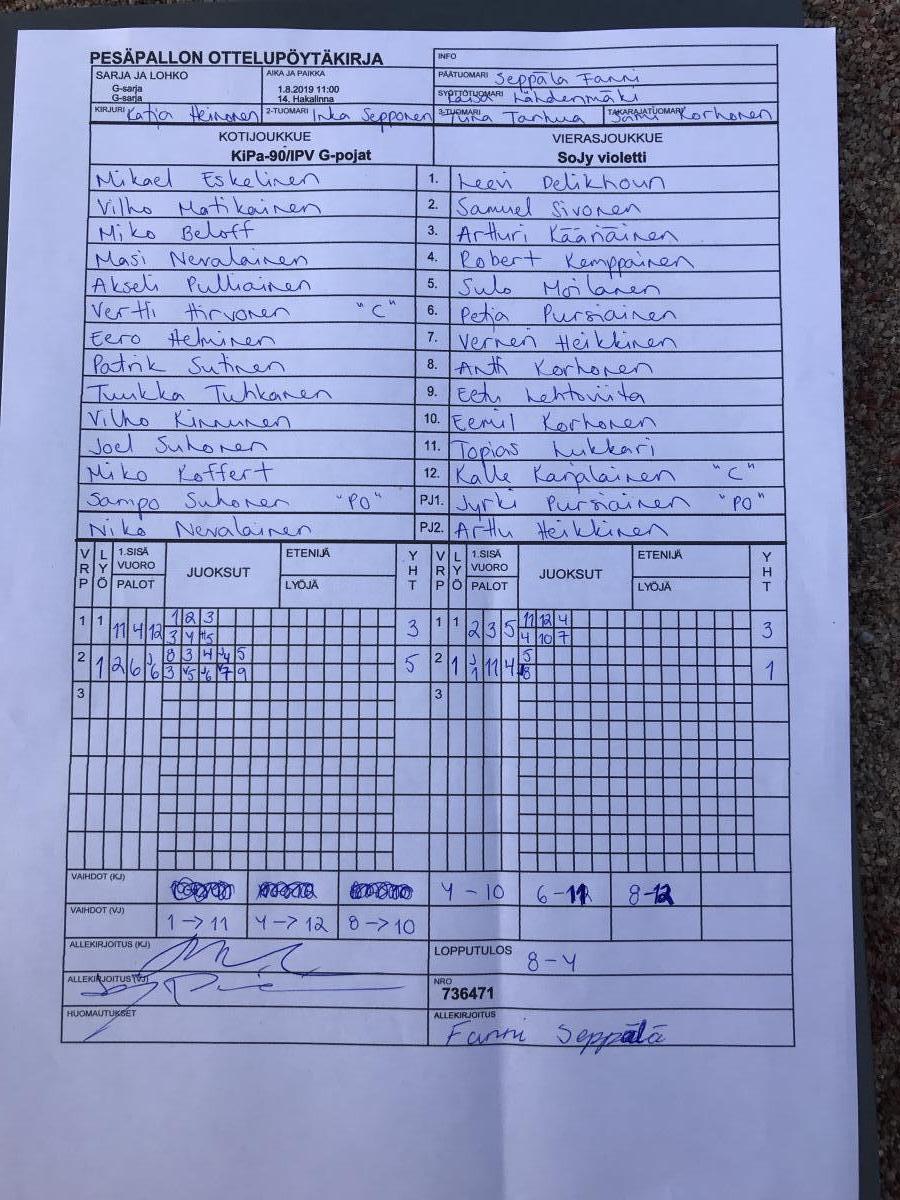 PESÄPALLON OTTELUPÖYTÄKIRJA
INFO
SARJA JA LOHKO
G-sarja
G-sarja
AIKA JA PAIKKA
1.8.2019 11:00
14. Hakalinna
PÄÄTUOMARI Seppälä Fanni
SYÖTTÖTUOMARI Kaisa Lähdenmäki
KIRJURI Katja Heinonen 2-TUOMARI Inka Sepponen 3-TUOMARI Tuha Tarhua TAKARAJATUOMARI Sami Korhonen
KOTIJOUKKUE VIERASJOUKKUE
KiPa-90/IPV G-pojat SoJy violetti
Mikael Eskelinen 1. Leevi Delikhoun
Vilho Matikainen 2. Samuel Sivonen
Miko Beloff 3. Artturi Kääriäinen
Masi Nevalainen 4. Robert Kemppainen
Akseli Pulliainen 5. Sulo Moilanen
Vertti Hirvonen "C" 6. Petja Pursiainen
Eero Helminen 7. Verneri Heikkinen
Patrik Sutinen 8. Antti Korhonen
Tuukka Tuhkanen 9. Eetu Lehtoviita
Vilho Kinnunen 10. Eemil Korhonen
Joel Suhonen 11. Topias Lukkari
Miko Koffert 12. Kalle Karjalainen "C"
Sampo Suhonen "PO" PJ1. Jyrki Pursiainen "PO"
Niko Nevalainen PJ2. Arttu Heikkinen
VRP LYÖ 1.SISÄ VUORO PALOT JUOKSUT ETENIJÄ LYÖJÄ YHT VRP LYÖ 1.SISÄ VUORO PALOT JUOKSUT ETENIJÄ LYÖJÄ YHT
1 1 11 4 12 1 2 3 3 1 1 2 3 5 11 12 4 3
3 4 5 4 10 7
2 1 2 6 J6 8 3 4 J4 5 5 2 1 J1 11 4 5 1
3 5 6 7 9 8
3 3
VAIHDOT (KJ) 4 - 10 6-11 8-12
VAIHDOT (VJ) 1 -> 11 4 -> 12 8 -> 10
ALLEKIRJOITUS (KJ)
LOPPUTULOS 8-4
ALLEKIRJOITUS (VJ)
NRO
736471
HUOMAUTUKSET
ALLEKIRJOITUS
Fanni Seppälä